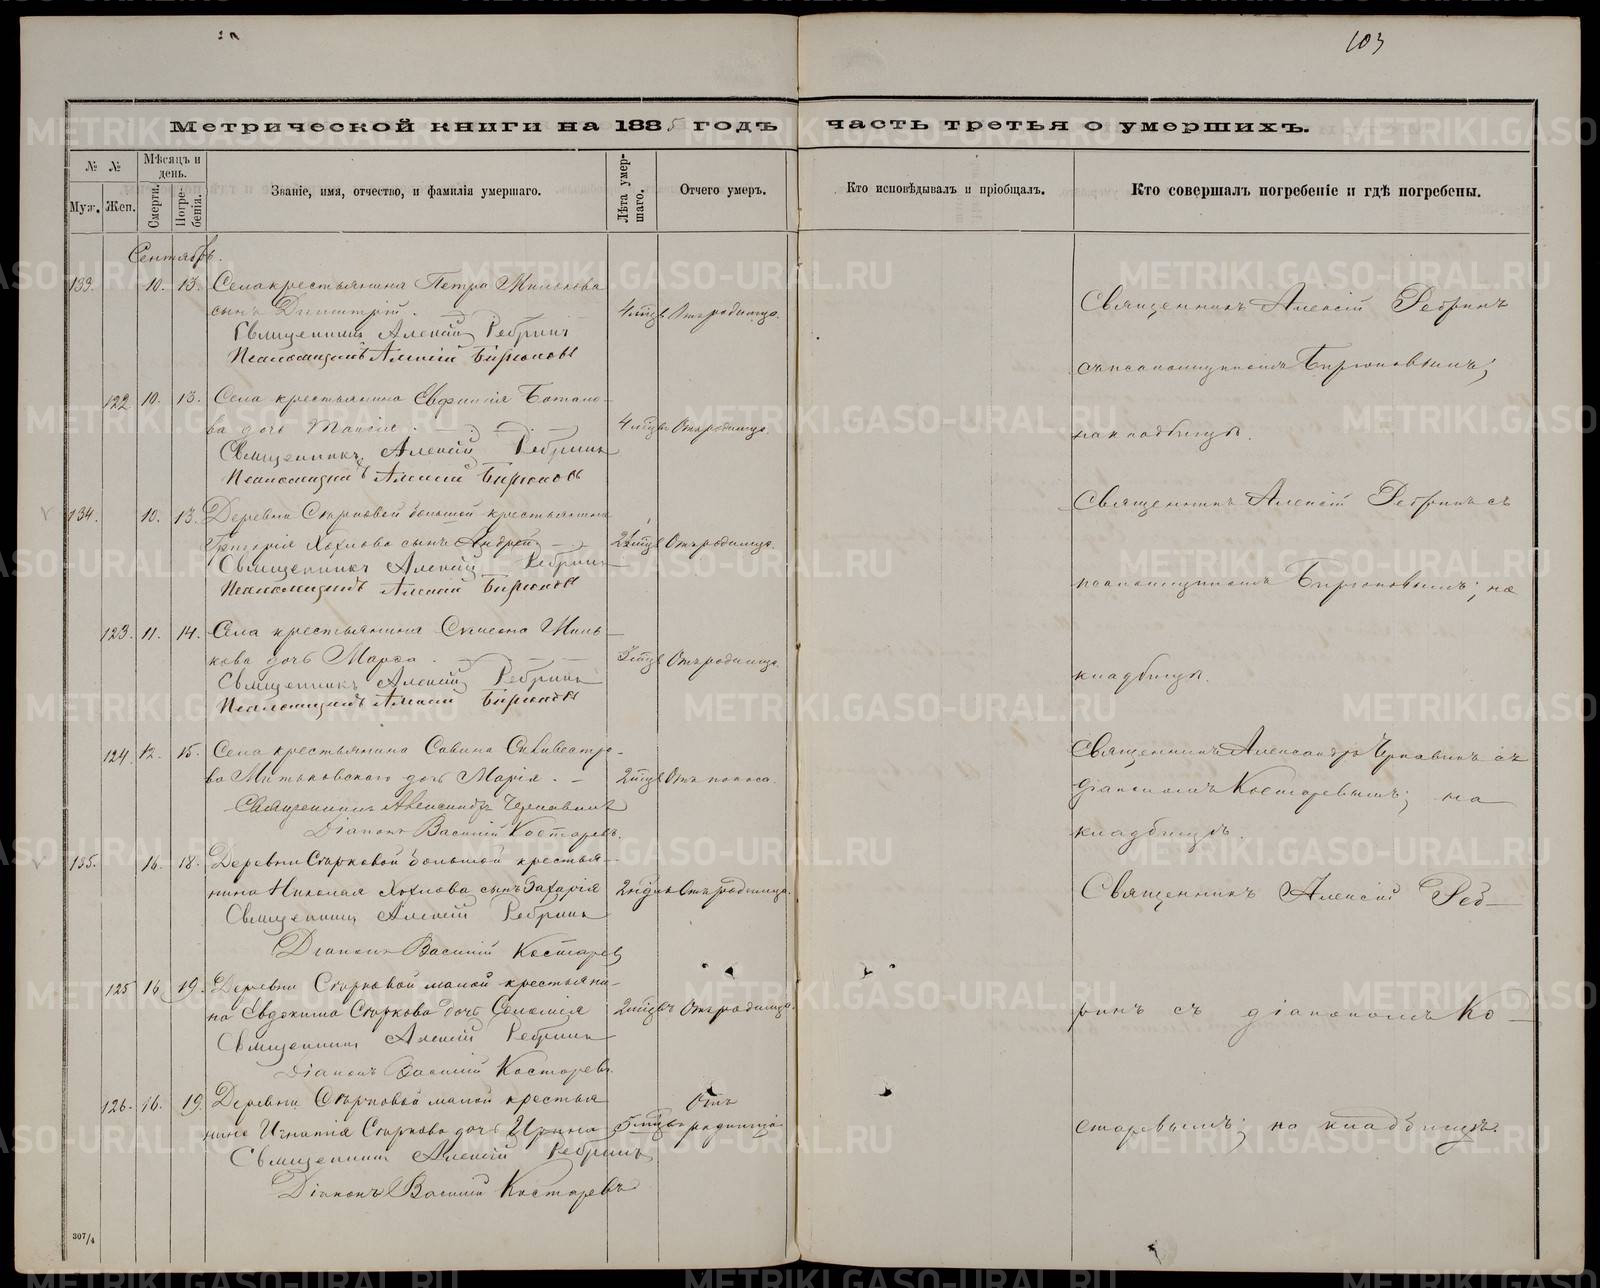 103
Метрической книги на 1885 годъ часть третья о умершихъ.
№ № Мѣсяцъ и день.
Муж. Жен. Смерти. Погребенія. Званіе, имя, отчество, и фамилія умершаго. Лѣта умершаго. Отчего умеръ. Кто исповѣдывалъ и пріобщалъ. Кто совершалъ погребеніе и гдѣ погребены.
Сентябрь.
133. 10. 13. Села крестьянина Петра
сынъ Димитрій. 4 мцв Отъ родимца.
Священникъ Алексій Ребринъ
Псаломщикъ Алексій Бирюковъ
Священникъ Алексій Ребринъ
съ псаломщикомъ Бирюковымъ;
на кладбищѣ.
122 10. 13. Села крестьянина
ва дочь 4 мцв Отъ родимца.
Священникъ Алексій Ребринъ
Псаломщикъ Алексій Бирюковъ
134. 10. 13. Деревни Старковой большой крестьянина
Григорія Хохлова сынъ Андрей Отъ родимца.
Священникъ Алексій Ребринъ
Псаломщикъ Алексій Бирюковъ
Священникъ Алексій Ребринъ съ
псаломщикомъ Бирюковымъ; на
кладбищѣ.
123. 11. 14. Села крестьянина
кова дочь Марѳа. мцв Отъ родимца.
Священникъ Алексій Ребринъ
Псаломщикъ Алексій Бирюковъ
124. 12. 15. Села крестьянина Савина Сильвестро-
ва Митьковского дочь Марія. 2 мцв Отъ поноса.
Священникъ Александръ Чернавинъ
Діаконъ Василій Костаревъ.
Священникъ Александръ Чернавинъ съ
діакономъ Костаревымъ; на
кладбищѣ.
135. 16. 18. Деревни Старковой большой крестья-
нина Николая Хохлова сынъ Захарія 2 нѣд Отъ родимца.
Священникъ Алексій Ребринъ
Діаконъ Василій Костарев
Священникъ Алексій Реб-
ринъ съ діакономъ Ко-
старевымъ; на кладбищѣ.
125 16 19. Деревни Старковой малой крестьяни-
на Евдокима Старкова дочь Соломія 2 мцв Отъ родимца.
Священникъ Алексій Ребринъ
Діаконъ Василій Костаревъ.
126. 16. 19 Деревни Старковой малой крестья
нина Игнатія Старкова дочь Ирина 5 мцв Отъ родимца
Священникъ Алексій Ребринъ
Діаконъ Василій Костаревъ
307/4
METRIKI.GASO-URAL.RU